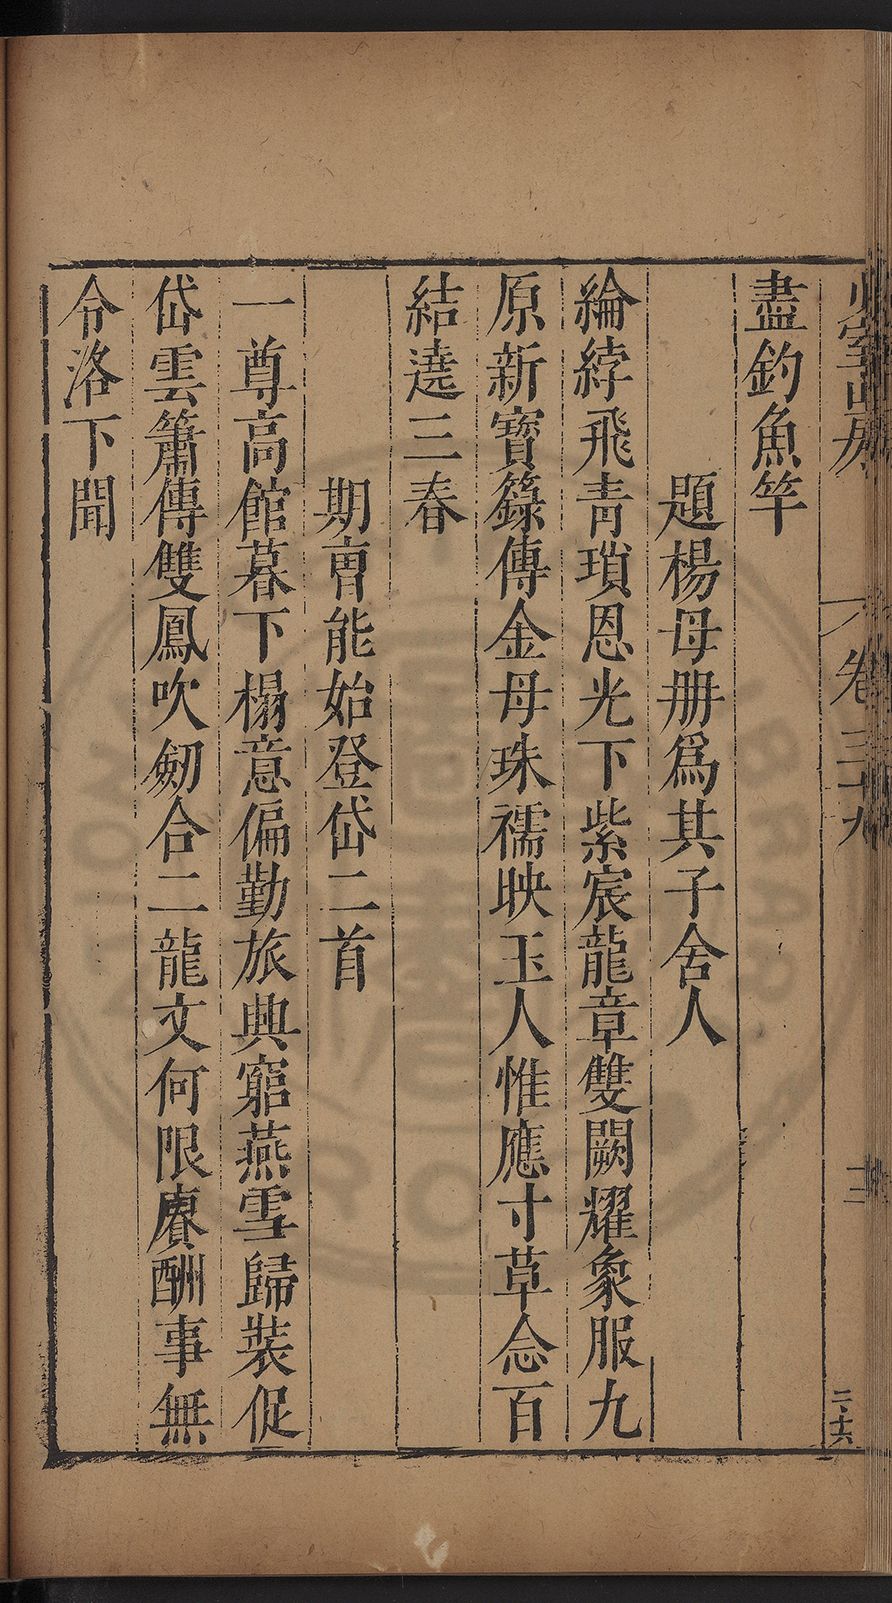 盡釣魚竿
題楊母册爲其子舍人
綸綍飛青瑣恩光下紫宸龍章雙闕耀象服九
原新寶籙傳金母珠襦映玉人惟應寸草念百
結遶三春
期曹能始登岱二首
一尊高館暮下榻意偏勤旅興窮燕雪歸裝促
岱雲簫傳雙鳳吹劒合二龍文何限賡酬事無
令洛下聞